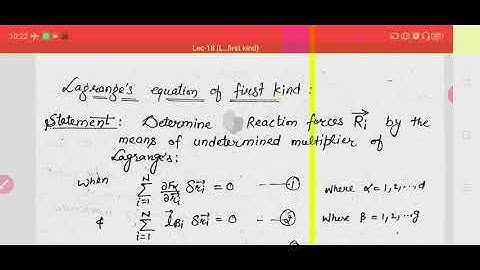 10:22
Lec-18 (L...first kind)
Lagrange's equation of first kind :
Statement : Determine Reaction forces $\vec{R_i}$ by the
means of undetermined multiplier of
Lagrange's :
when $\sum_{i=1}^{N} \frac{\partial F_\alpha}{\partial \vec{r_i}} \delta \vec{r_i} = 0$ --- ① where α = 1, 2, ...d
& $\sum_{i=1}^{N} \vec{l}_{\beta i} \delta \vec{r_i} = 0$ --- ② where β = 1, 2, ...g